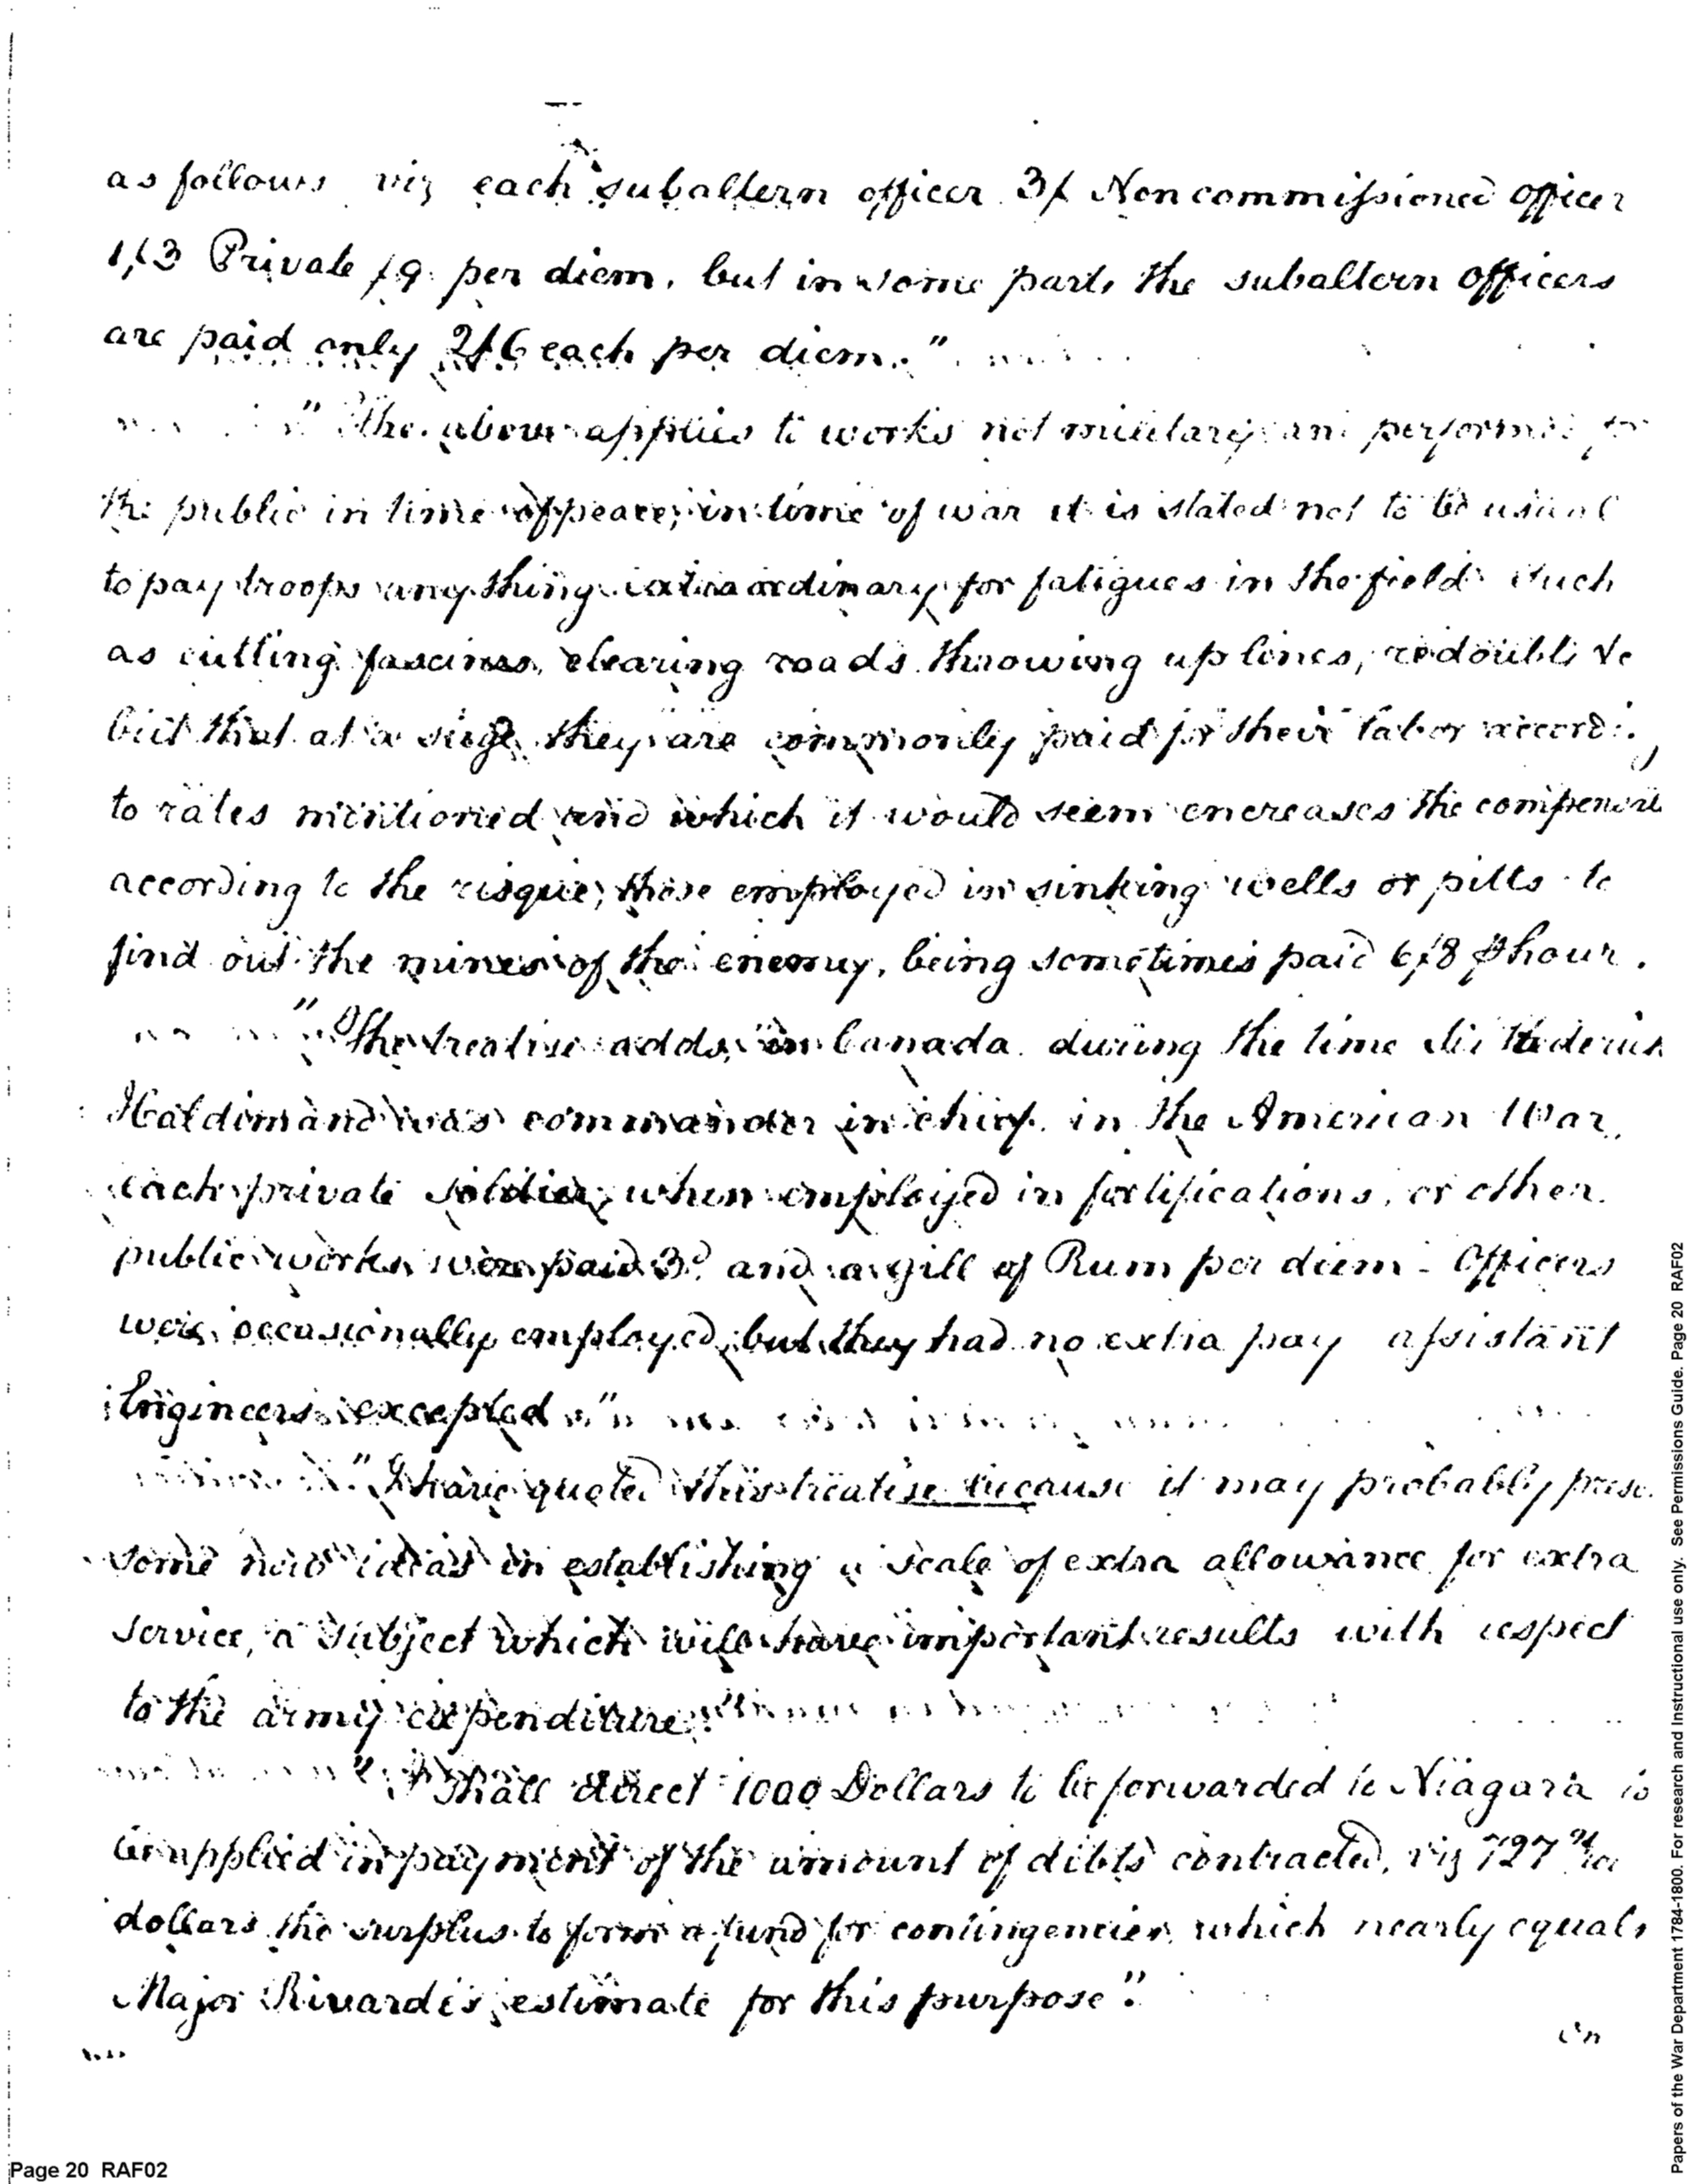 as follows viz each subaltern officer 3/ Non commissioned officer
1/3 Private /9 per diem, but in some parts the subaltern officers
are paid only 2/6 each per diem."
"The above applies to works not military and performed for
the public in time of peace; in time of war it is stated not to be usual
to pay troops any thing extraordinary for fatigues in the field such
as cutting fascines, clearing roads throwing up lines, redoubts &c
but that at a siege they are commonly paid for their labor accordg.
to rates mentioned and which it would seem encreases the compensat
according to the risque; those employed in sinking wells or pitts to
find out the mines of the enemy, being sometimes paid 6/8 ⅌ hour.
"The treatise adds, "in Canada during the time Sir Frederick
Haldimand was commander in chief in the American War,
each private soldier, when employed in fortifications, or other
public works, were paid 3d and a gill of Rum per diem - Officers
were occasionally employed, but they had no extra pay assistant
Engineers excepted"
"I have quoted this treatise because it may probably prese
some new ideas in establishing a scale of extra allowance for extra
service, a subject which will have important results with respect
to the army expenditure."
"I shall direct 1000 Dollars to be forwarded to Niagara to
be applied in payment of the amount of debts contracted, viz 727
dollars the surplus to form a fund for contingencies which nearly equals
Major Rivardi's estimate for this purpose".
in
Page 20 RAF02
Papers of the War Department 1784-1800. For research and Instructional use only. See Permissions Guide. Page 20 RAF02